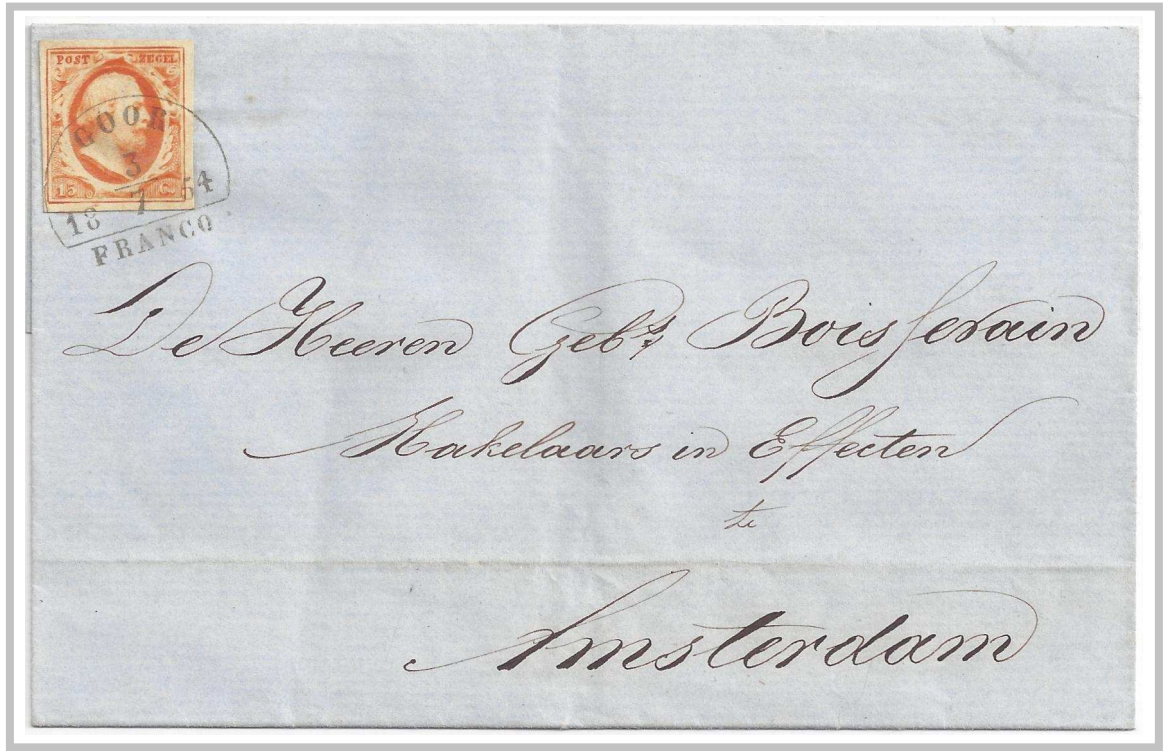 POST ZEGEL
GOOR
3
18 7 54
15 C.
FRANCO
De Heeren Gebrs Boissevain
Makelaars in Effecten
te
Amsterdam